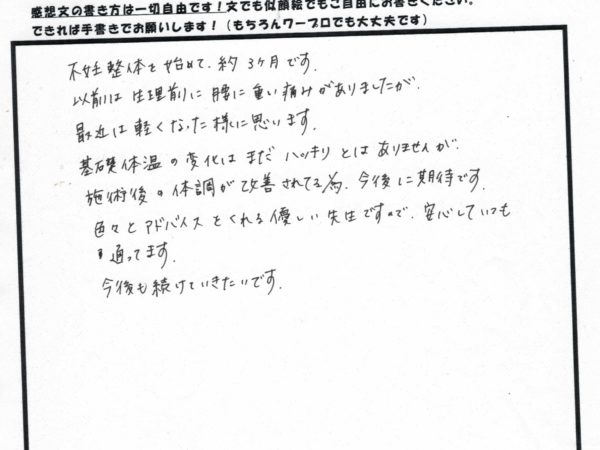 感想文の書き方は一切自由です！文でも似顔絵でもご自由にお書きください。
できれば手書きでお願いします！（もちろんワープロでも大丈夫です）
不妊整体を始めて、約3ヶ月です。
以前は生理前に腰に重い痛みがありましたが、
最近は軽くなった様に思います。
基礎体温の変化はまだハッキリとはありませんが、
施術後の体調が改善されてる為、今後に期待です。
色々とアドバイスをくれる優しい先生ですので、安心していつも
通ってます。
今後も続けていきたいです。